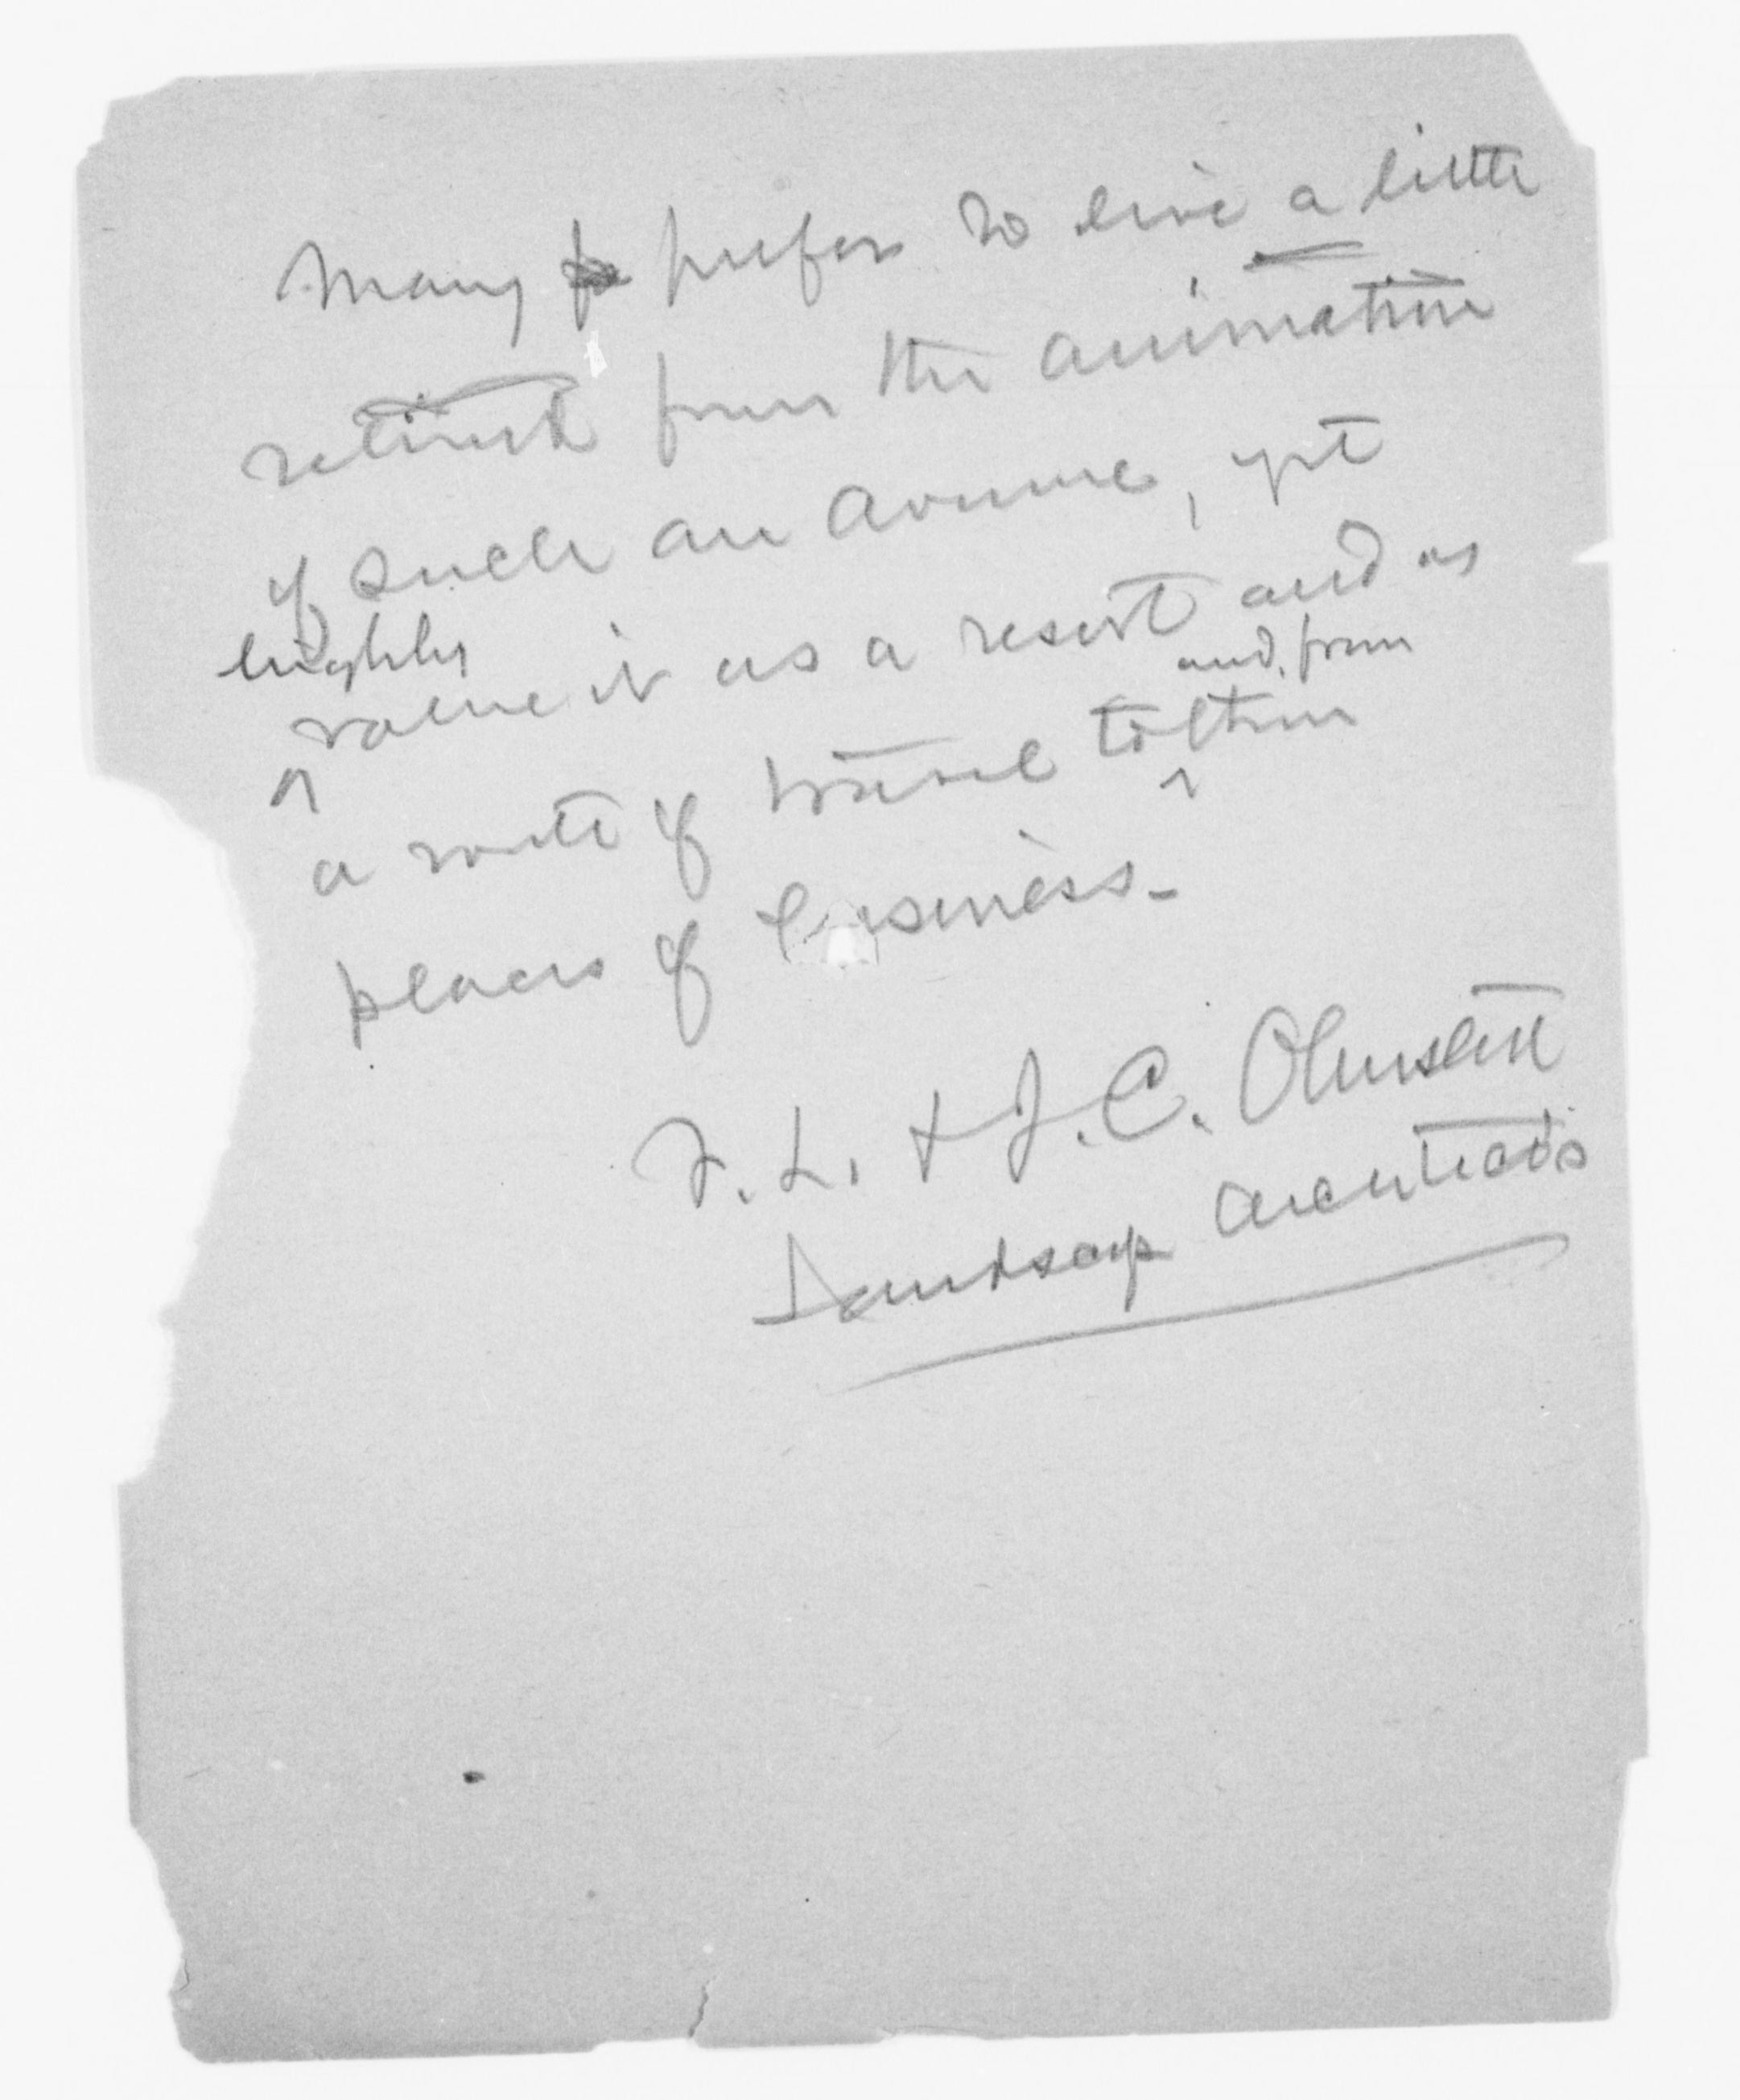 Many prefer to live a little
retired from the animation
of such an avenue, yet
highly
value it as a resort and as
and from
a route of travel to their
places of business.
F. L. & J. C. Olmsted
Landscape Architects